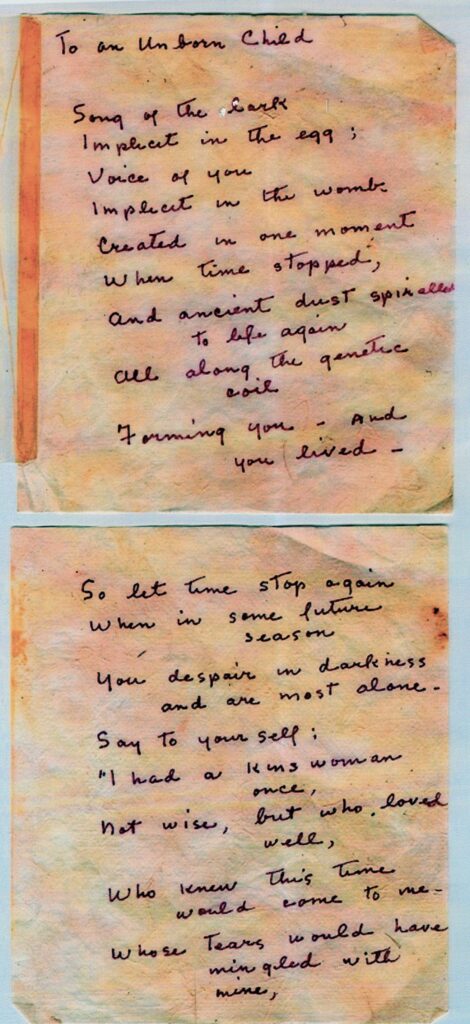 To an Unborn Child
Song of the Lark
Implicit in the egg;
Voice of you
Implicit in the womb.
Created in one moment
When time stopped,
And ancient dust spiralled
to life again
All along the genetic
coil
Forming you - And
you lived -
So let time stop again
When in some future
season
You despair in darkness
and are most alone -
Say to your self;
"I had a kinswoman
once,
Not wise, but who loved
well,
Who knew this time
would come to me -
Whose tears would have
mingled with
mine,